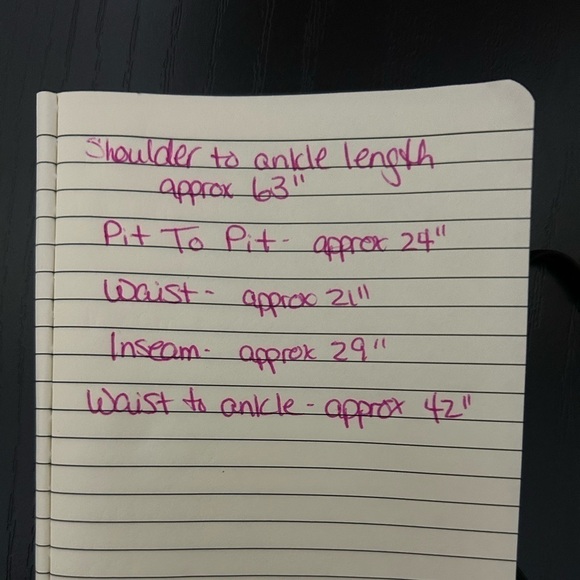 Shoulder to ankle length
approx 63"
Pit To Pit - approx 24"
Waist - approx 21"
Inseam - approx 29"
Waist to ankle - approx 42"